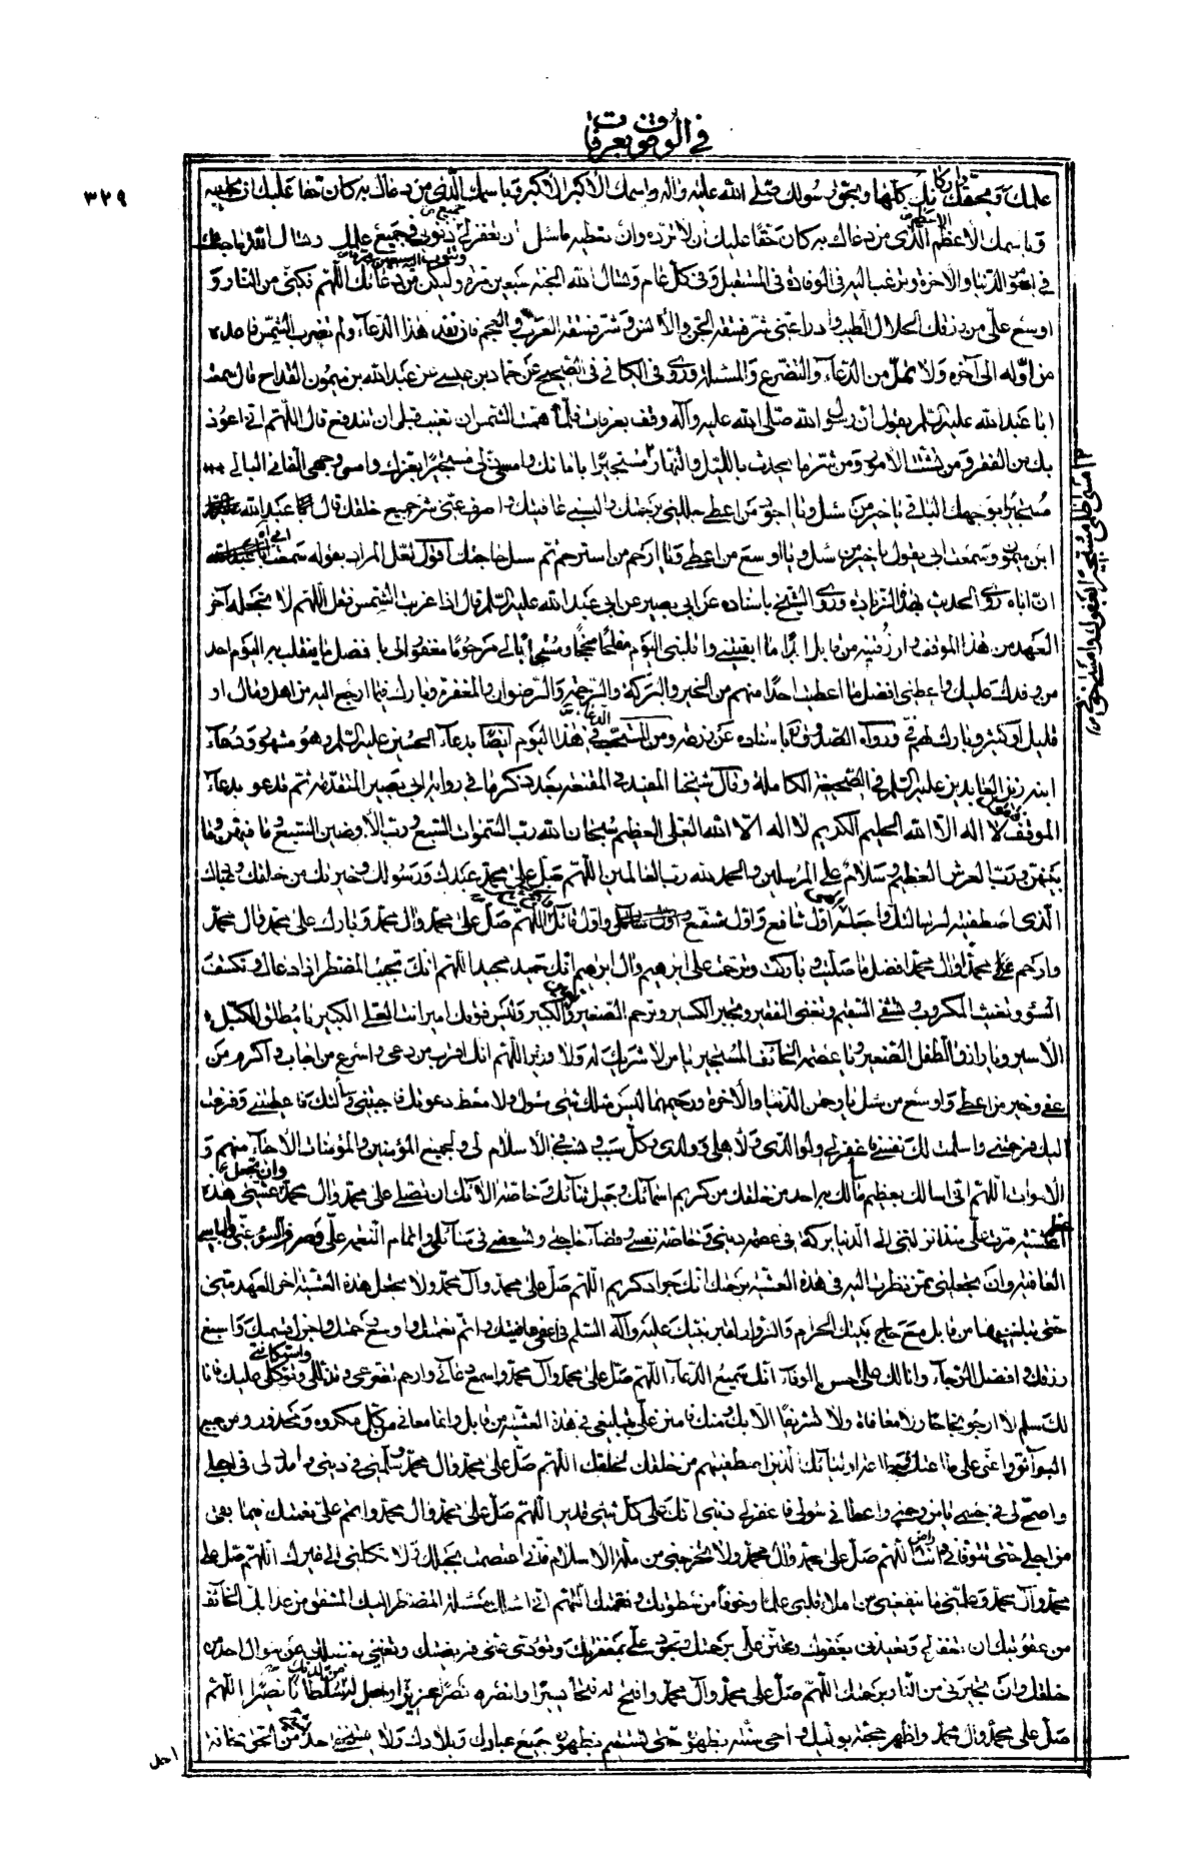 في الوقوف بعرفات
٣٢٩
علمك وبحقك باركانك كلها وبحق رسولك صلى الله عليه واله وباسمك الاكبر الاكبر وباسمك الذي من دعاك به كان حقا عليك ان تجيبه
وباسمك الاعظم الذي من دعاك به كان حقا عليك ان لا ترده وان تعطيه ما سئل ان تغفر لي ذنوبي في جميع علمك وتسال الله حاجتك
في الدنيا والاخرة وترغب اليه في الوفادة في المستقبل وفي كل عام وتسال الله الجنة سبعين مرة وليكن من دعائك اللهم فكني من النار و
اوسع علي من رزقك الحلال الطيب وادرا عني شر فسقة الجن والانس وشر فسقة العرب والعجم فان نفد هذا الدعاء ولم تغرب الشمس فاعده
من اوله الى آخره ولا تمل من الدعاء والتضرع والمسئلة وروى في الكافي في الصحيح عن حماد بن عيسى عن عبدالله بن ميمون القداح قال سمعت
ابا عبدالله عليه السلم يقول ان رسول الله صلى الله عليه وآله وقف بعرفات فلما همت الشمس ان تغيب قبل ان تندفع قال اللهم اني اعوذ
بك من الفقر ومن تشتت الامور ومن شر ما يحدث بالليل والنهار امسى ظلمي مستجيرا بعفوك وامسى خوفي مستجيرا بامانك وامسى ذلي مستجيرا بعزك وامسى وجهي الفاني البالي
مستجيرا بوجهك الباقي يا خير من سئل ويا اجود من اعطى جللني برحمتك والبسني عافيتك واصرف عني شر جميع خلقك قال عبدالله
ابن ميمون وسمعت ابي يقول يا خير من سئل ويا اوسع من اعطى ويا ارحم من استرحم ثم سل حاجتك اقول لعل المراد بقوله سمعت ابي
ان اباه روى الحديث بهذه الزيادة وروى الشيخ باسناده عن ابي بصير عن ابي عبدالله عليه السلم قال اذا غربت الشمس فقل اللهم لا تجعله آخر
العهد من هذا الموقف وارزقنيه من قابل ابدا ما ابقيتني واقلبني اليوم مفلحا منجحا مستجابا لي مرحوما مغفورا لي بافضل ما ينقلب به اليوم احد
من وفدك عليك واعطني افضل ما اعطيت احدا منهم من الخير والبركة والرحمة والرضوان والمغفرة وبارك لي فيما ارجع اليه من اهل ومال او
قليل او كثير وبارك لهم في ورواه الصدوق باسناده عن زرعة ومن المستحب في هذا اليوم ايضا دعاء الحسين عليه السلم وهو مشهور ودعاء
ابنه زين العابدين عليه السلم في الصحيفة الكاملة وقال شيخنا المفيد في المقنعة بعد ذكر ما في رواية ابي بصير المتقدمة ثم تدعو بدعاء
الموقف لا اله الا الله الحليم الكريم لا اله الا الله العلي العظيم سبحان الله رب السموات السبع ورب الارضين السبع وما فيهن وما
بينهن ورب العرش العظيم وسلام على المرسلين والحمد لله رب العالمين اللهم صل على محمد عبدك ورسولك وخيرتك من خلقك
الذي اصطفيته لرسالتك واجعله اول شافع واول مشفع واول قائل اللهم صل على محمد وال محمد وبارك على محمد وال محمد
وارحم محمدا وال محمد افضل ما صليت وباركت وترحمت على ابرهيم وال ابرهيم انك حميد مجيد اللهم انك تجيب المضطر اذا دعاك وتكشف
السوء وتغيث المكروب وتشفي السقيم وتغني الفقير وتجبر الكسير وترحم الصغير وتعين الكبير وليس فوقك امير وانت العلي الكبير يا مطلق المكبل
الاسير ويا رازق الطفل الصغير ويا عصمة الخائف المستجير يا من لا شريك له ولا وزير اللهم انك اقرب من دعي واسرع من اجاب واكرم من
عفى وخير من اعطى واوسع من سئل يا رحمن الدنيا والاخرة ورحيمهما ليس كمثلك شيء مسئول ولا معط دعوتك فاجبتني وسالتك فاعطيتني وفزعت
اليك فرحمتني واسلمت لك نفسي فاغفر لي ولوالدي ولاهلي وولدي وكل سبب ونسب في الاسلام لي ولجميع المؤمنين والمؤمنات الاحياء منهم و
الاموات اللهم اني اسالك بعظيم ما سالك به احد من خلقك من كريم اسمائك وجميل ثنائك وخاصة الائك ان تصلي على محمد وال محمد وان تجعل عشيتي هذه
اعظم عشية مرت علي منذ انزلتني الى الدنيا بركة في عصمة ديني وخاصة نفسي وقضاء حاجتي وتشفيعي في مسائلي واتمام النعمة علي وصرف السوء عني والباسي
العافية وان تجعلني ممن نظرت اليه في هذه العشية برحمتك انك جواد كريم اللهم صل على محمد وآل محمد ولا تجعل هذه العشية اخر العهد مني
حتى تبلغنيها من قابل مع حاج بيتك الحرام والزوار لقبر نبيك عليه وآله السلم في اعفى عافيتك واتم نعمتك واوسع رحمتك واجزل قسمك واسبغ
رزقك وافضل الرجاء وانا لك على احسن الوفاء انك سميع الدعاء اللهم صل على محمد وآل محمد واسمع دعائي وارحم تضرعي وتذللي واستكانتي وتوكلي عليك فانا
لك سلم لا ارجو نجاحا ولا معافاة ولا تشريفا الا بك ومنك فامنن علي بتبليغي هذه العشية من قابل وانا معافى من كل مكروه ومحذور ومن جميع
البوائق واعني على طاعتك وطاعة اوليائك الذين اصطفيتهم من خلقك لخلقك اللهم صل على محمد وال محمد وسلمني في ديني وامدد لي في اجلي
واصح لي في جسمي يا من رحمني واعطاني سؤلي فاغفر لي ذنبي انك على كل شيء قدير اللهم صل على محمد وال محمد واتمم علي نعمتك فيما بقي
من اجلي حتى تتوفاني وانت عني راض اللهم صل على محمد وال محمد ولا تخرجني من ملة الاسلام فاني اعتصمت بحبلك ولا تكلني الى غيرك اللهم صل على
محمد وآل محمد وعلمني ما ينفعني واملا قلبي علما وخوفا من سطوتك ونقمتك اللهم اني اسالك مسئلة المضطر اليك المشفق من عذابك الخائف
من عقوبتك ان تغفر لي وتعيذني بعفوك وتحنن علي برحمتك وتجود علي بمغفرتك وتؤدي عني فريضتك وتغنيني بفضلك عن سوال احد من
خلقك وان تجيرني من النار برحمتك اللهم صل على محمد وآل محمد وافتح له فتحا يسيرا وانصره نصرا عزيزا واجعل له من لدنك سلطانا نصيرا اللهم
صل على محمد وال محمد واظهر حجته بوليك واحي سنته بظهوره حتى يستقيم بظهوره جميع عبادك وبلادك ولا يستخفي احد من الحق مخافة
احد